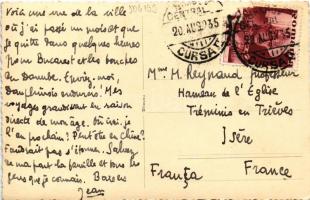 Voici une vue de la ville
où j'ai passé un mois et que
je quitte dans quelques heures
pour Bucarest et les bouches
du Danube. Ecrivez-moi,
Mes
voyages grandissent en raison
directe de mon âge. Où irai-je
l'an prochain? Peut être en Chine?
Faudrait pas s'étonner. Saluez
de ma part la famille et tous les
gens que je connais.
Jean
CENTRALA
20. AUG. 935
CURSA
Mme H. Reynaud
Hameau de l'Eglise
Tréminis en Trièves
Isère
França France